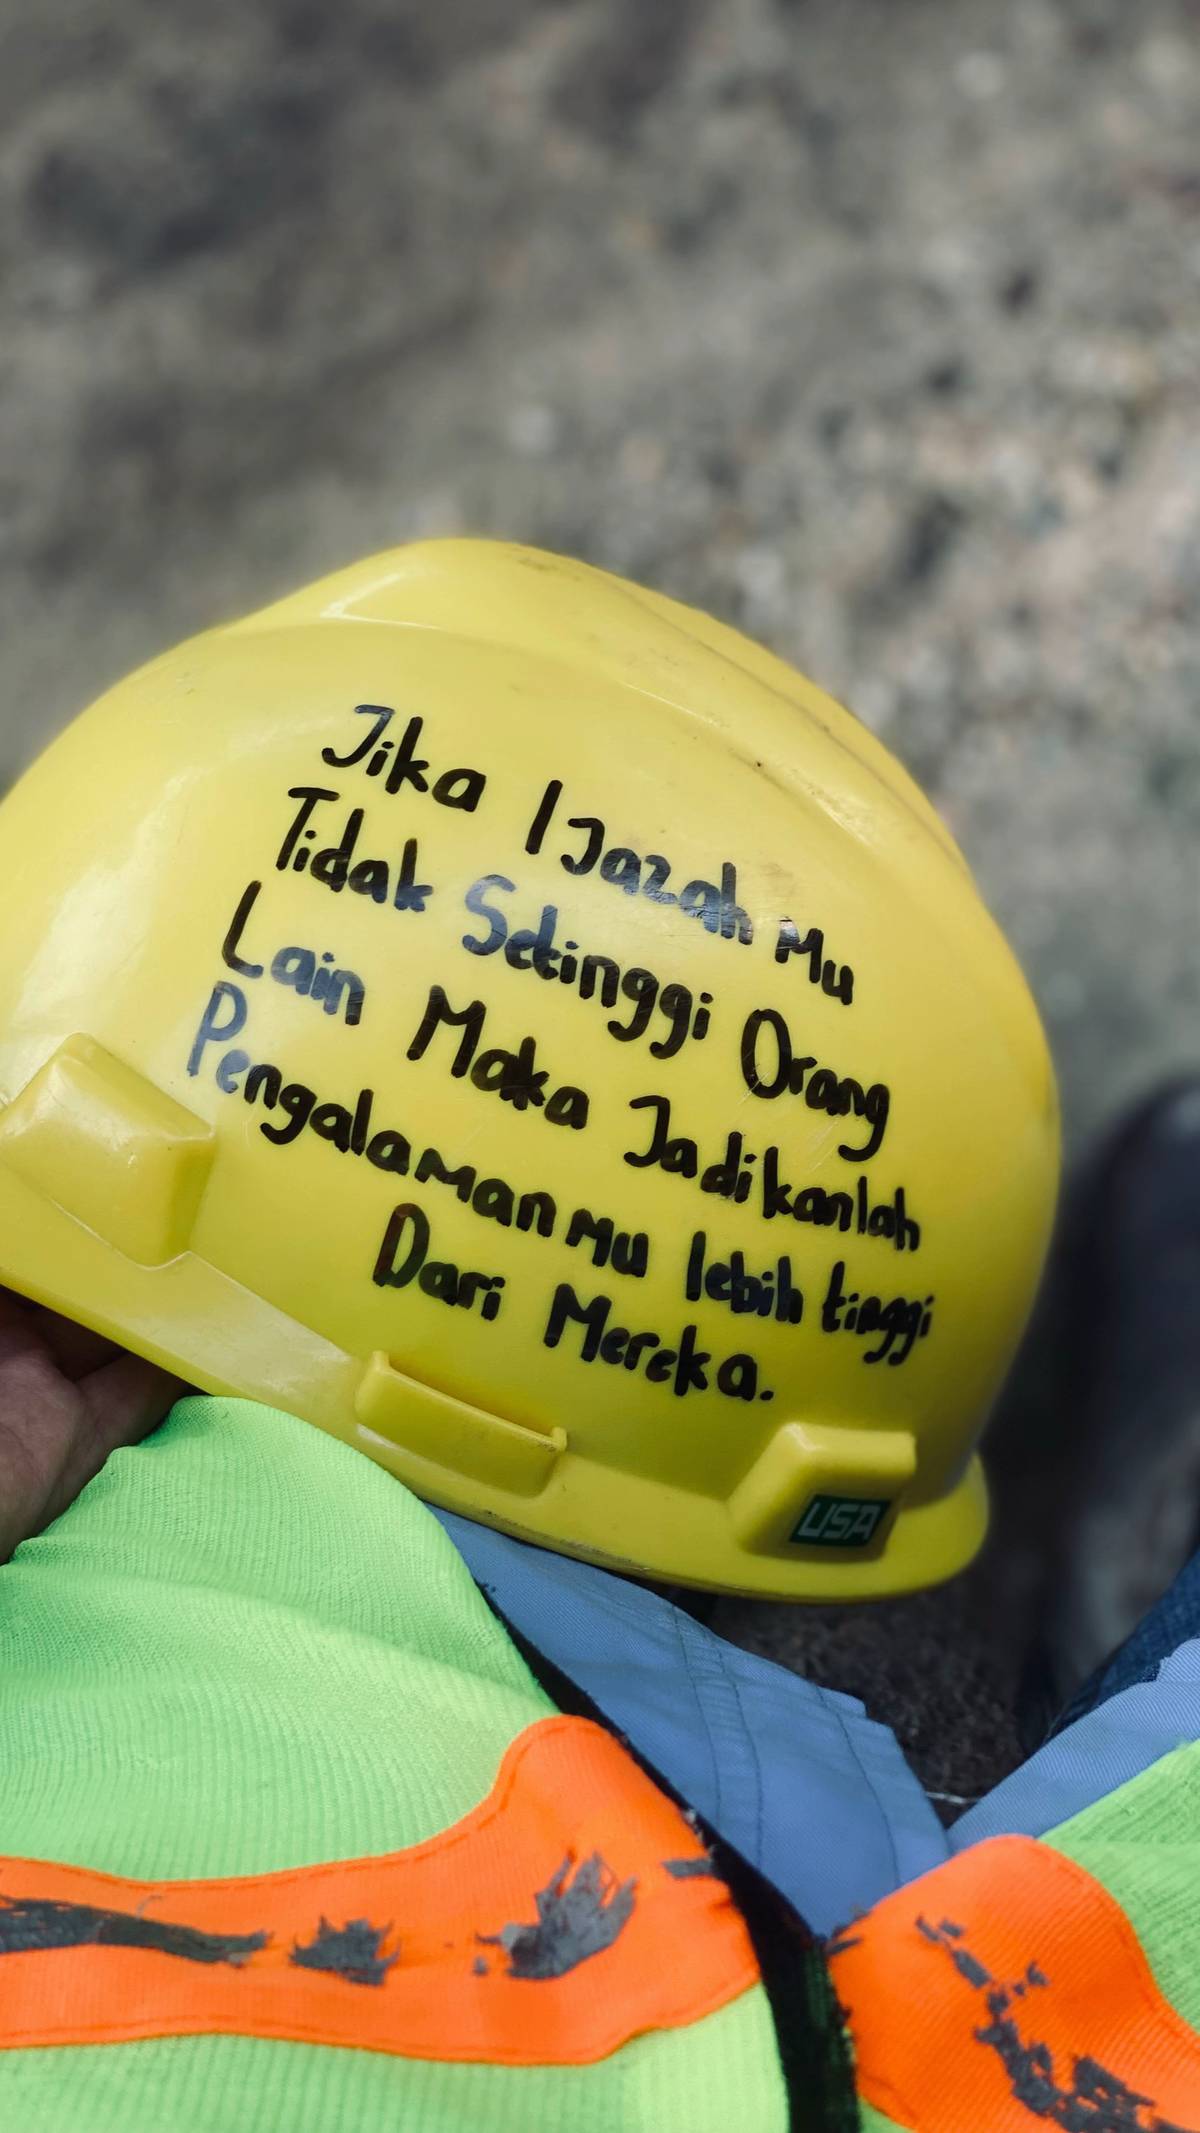 Jika Ijazah Mu
Tidak Setinggi Orang
Lain Maka Jadikanlah
Pengalaman Mu lebih tinggi
Dari Mereka.
USA